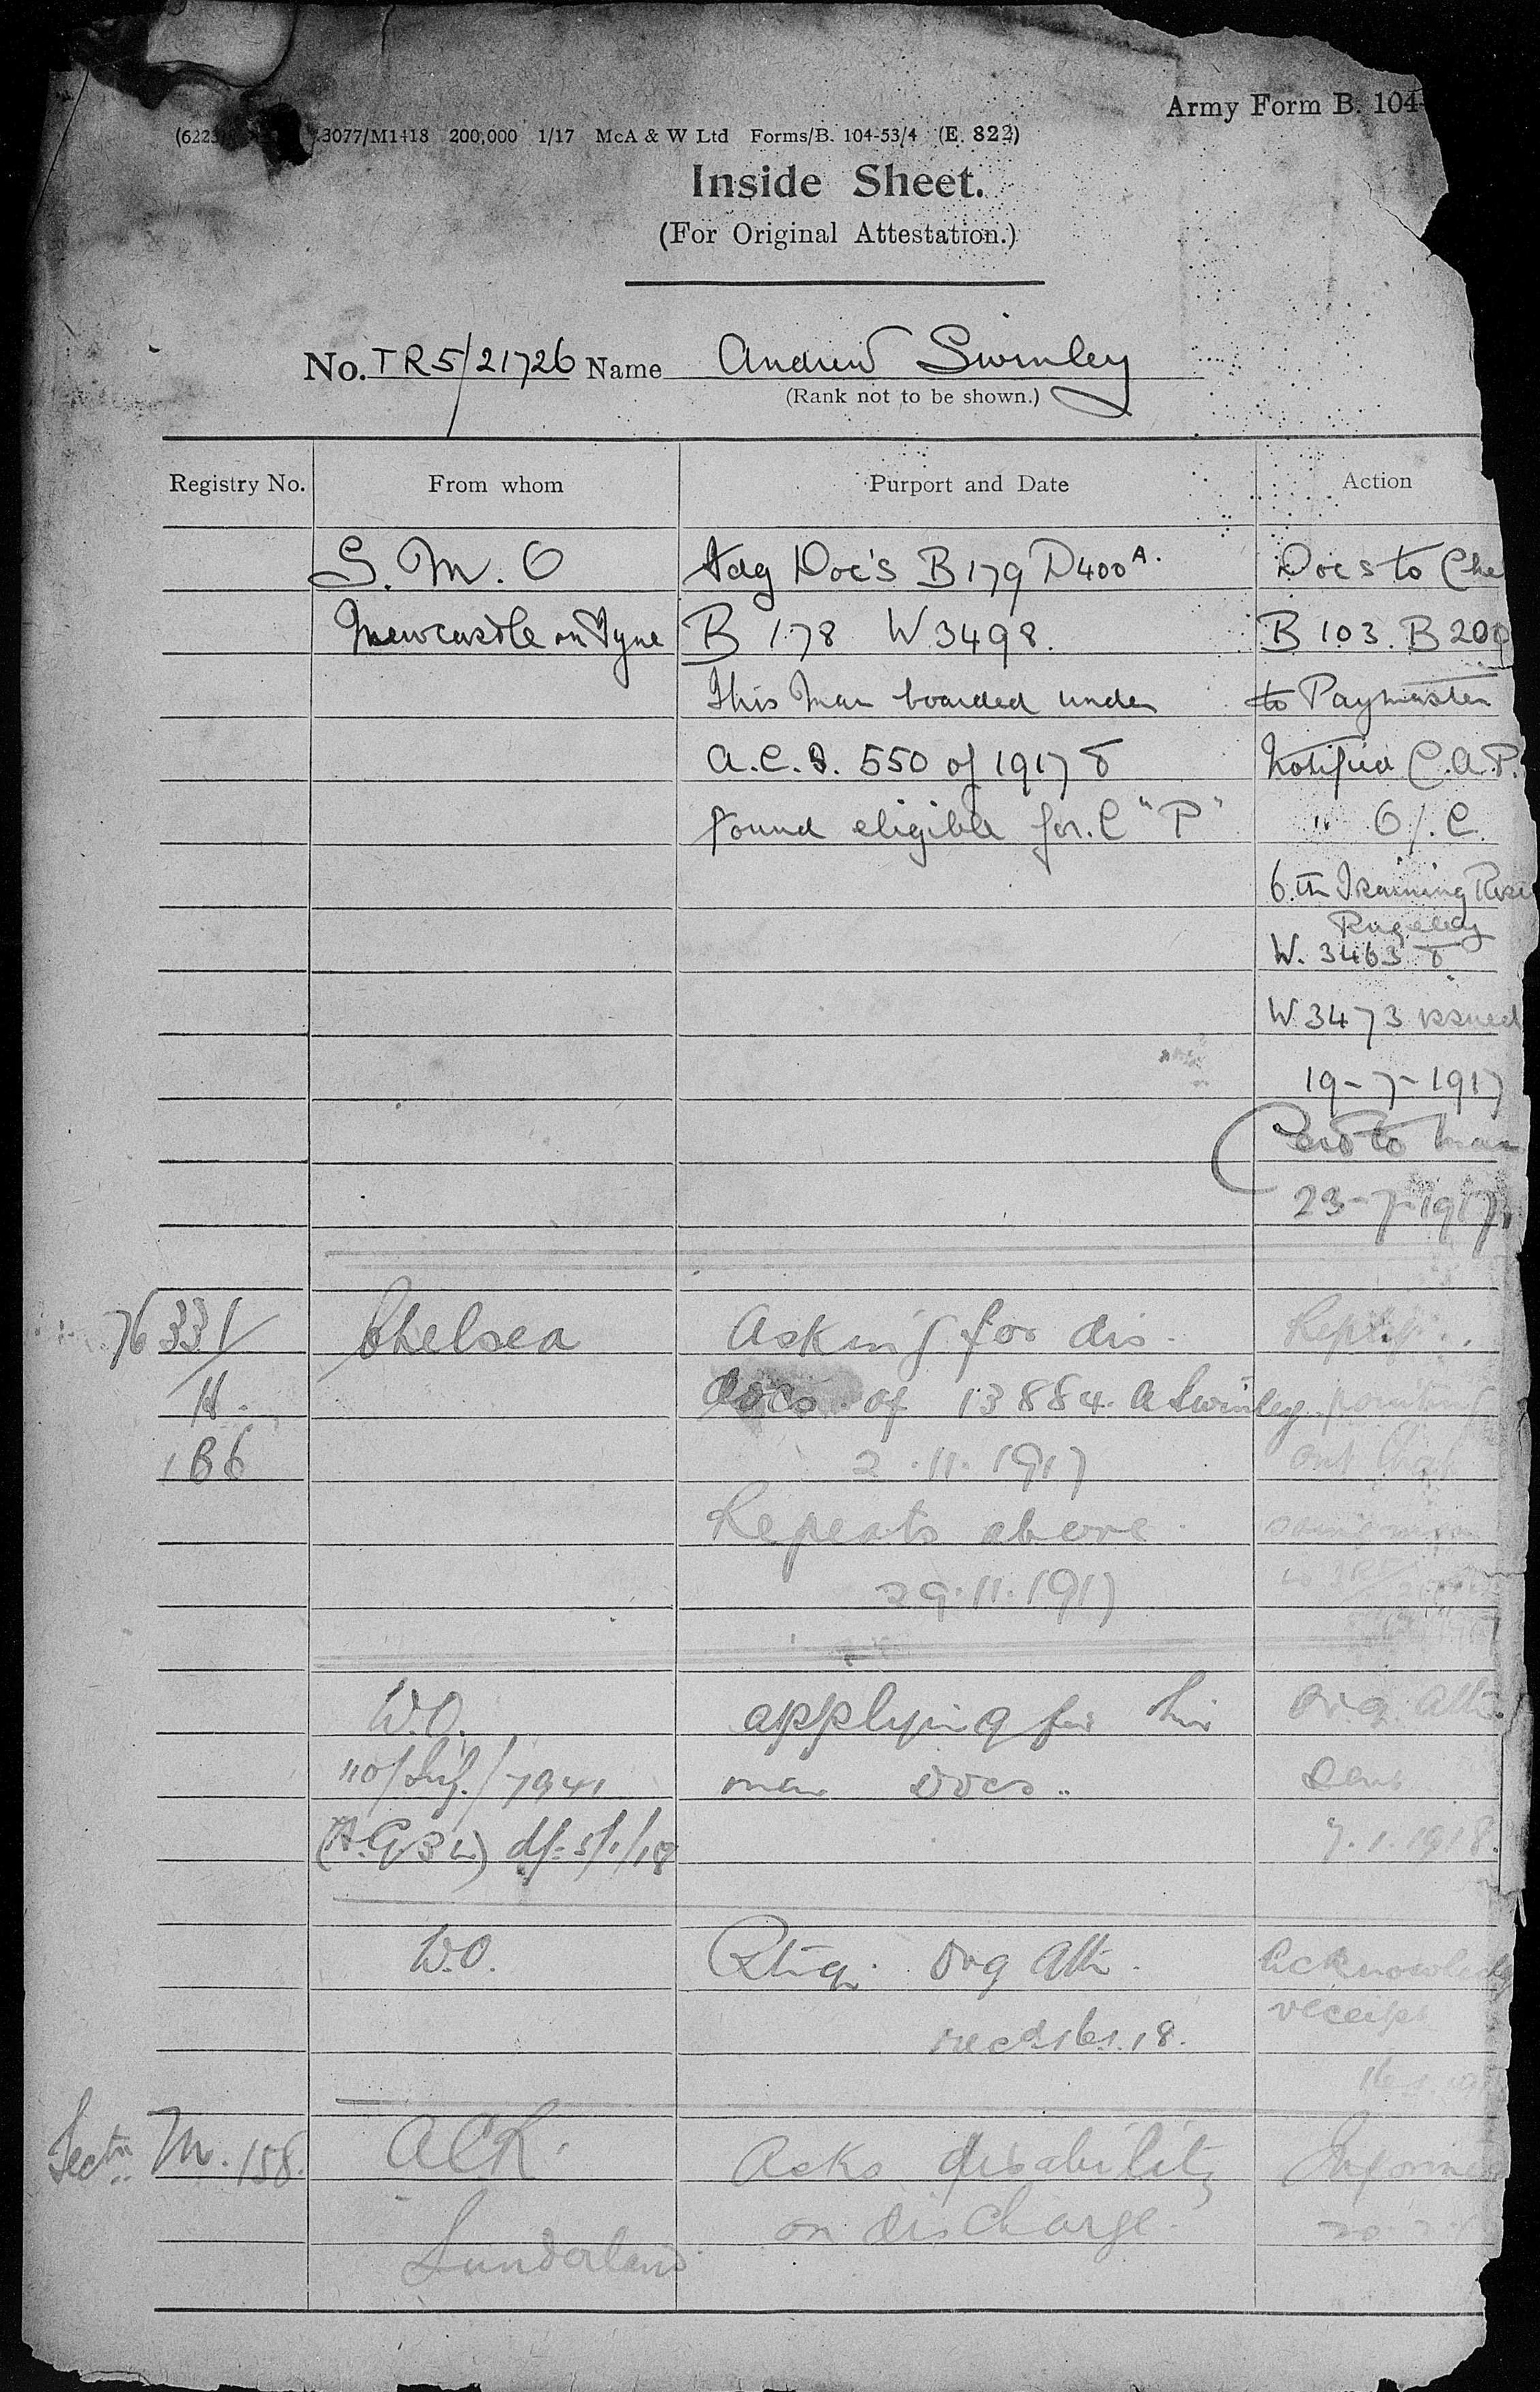 Army Form B. 104-
3077/M1418 200,000 1/17 McA & W Ltd Forms/B. 104-53/4 (E. 822)
Inside Sheet.
(For Original Attestation.)
No. TR5/21726 Name Andrew Swinley
(Rank not to be shown.)
Registry No. From whom Purport and Date Action
S. M. O Fdg Doc's B179 D400A. Docs to Che
Newcastle on Tyne B 178 W 3498. B 103. B 200
This Man boarded under to Paymaster
A.C.I. 550 of 1917 & Notified C.A.P.
found eligible for C "P" " O/. C.
6.th Training Rese
Rugeley
W. 3463 &
W 3473 issued
19-7-1917
to man
23-7-1917
76331/ Chelsea Asking for dis. Reply
H. docs of 13884. A Swinley pointing
186 2.11.1917 out that
Repeats above. same man
29.11.1917
W.O. applying for this Orig. Att.
110/Inf./7941 man Docs.. Sent
(A.G.3 L) d/- 5/1/18 7.1.1918.
W.O. Rtng. Org Att. Acknowledg
recd 16.1.18. receipt
16.1.
Sectn M. 158. ACR. Asks disability Informed
Sunderland. on discharge.